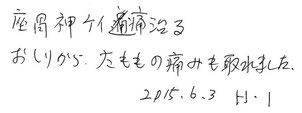 座骨神ケイ痛治る
おしりから、太ももの痛みも取れました。
2015.6.3 H.I